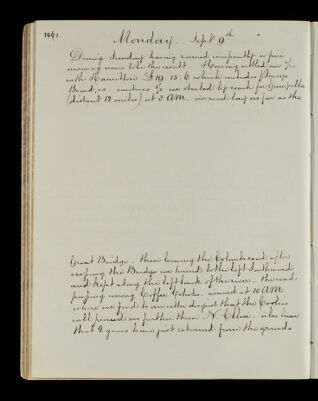 1861.
Monday. Sept 9th
During Sunday having rained incessantly a fine
morning was the result. Having settled our a/c
with Hamilton £19.15.6 which includes
Bread, &c. we started by coach for Gampolla
(distant 12 miles) at 8 AM. our road lay as far as the
Great Bridge - then leaving the Colombo road after
crossing the Bridge we turned to the left Southward
and kept along the left bank of the river. the road
passing many Coffee Estates. arrived at 10 AM.
where we find to our disgust that the Coolies
will proceed no further than N. Ellia. also hear
that 2 guns have just returned from the grounds